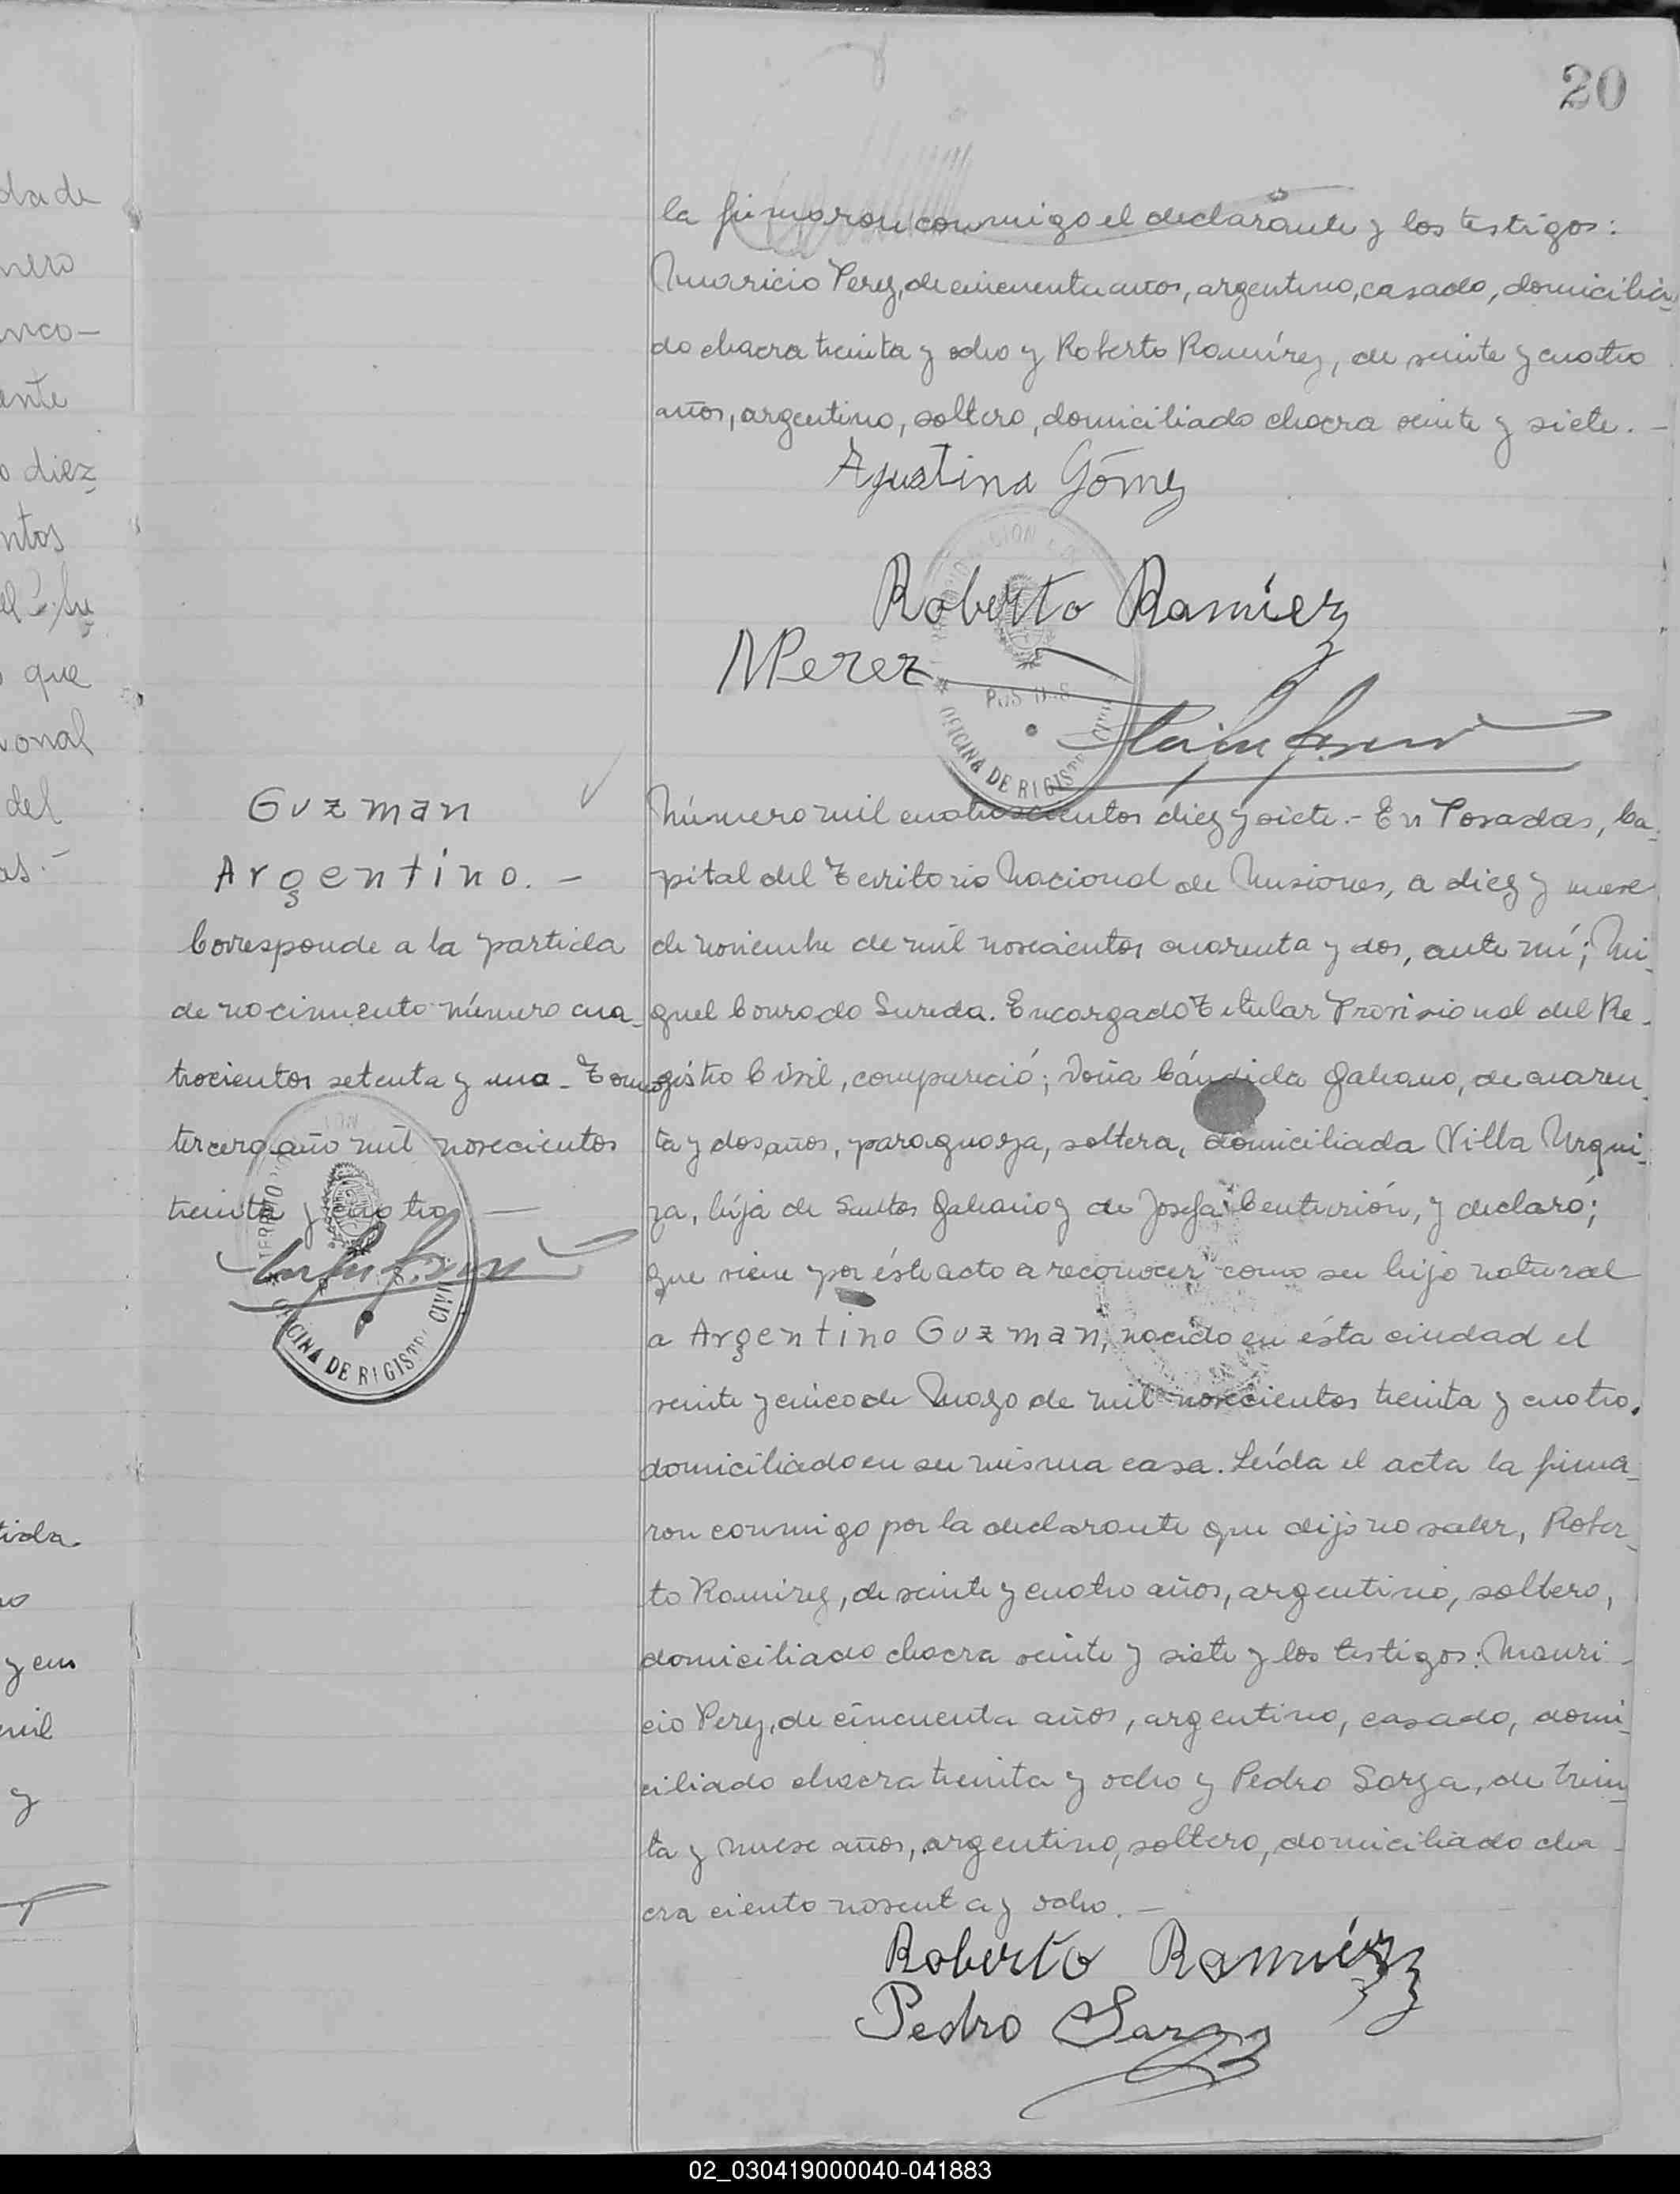 20
la firmaron conmigo el declarante y los testigos:
Mauricio Perez, de cincuenta años, argentino, casado, domicilia-
do chacra treinta y ocho y Roberto Ramírez, de veinte y cuatro
años, argentino, soltero, domiciliado chacra veinte y siete. -
Agustina Gómez
Roberto Ramírez
MPerez
OFICINA DE RIGISTRO CIVIL
Guzman
Argentino. -
Corresponde a la partida
de nacimiento número cua-
trocientos setenta y una - Tomo
tercero año mil novecientos
treinta y cuatro —
OFICINA DE RIGISTRO CIVIL
Número mil cuatrocientos diez y siete. - En Posadas, Ca-
pital del Territorio Nacional de Misiones, a diez y nueve
de noviembre de mil novecientos cuarenta y dos, ante mí; Mi-
guel Conrado Sureda. Encargado Titular Provisional del Re-
gistro Civil, compareció; doña Cándida Galeano, de cuaren-
ta y dos años, paraguaya, soltera, domiciliada Villa Urqui-
za, hija de Santos Galeano y de Josefa Centurión, y declaró;
que viene por éste acto a reconocer como su hijo natural
a Argentino Guzman, nacido en ésta ciudad el
veinte y cinco de Mayo de mil novecientos treinta y cuatro.
domiciliado en su misma casa. Leída el acta la firma-
ron conmigo por la declarante que dijo no saber, Rober-
to Ramírez, de veinte y cuatro años, argentino, soltero,
domiciliado chacra veinte y siete y los testigos: Mauri-
cio Perez, de cincuenta años, argentino, casado, domi-
ciliado chacra treinta y ocho y Pedro Sarza, de trein-
ta y nueve años, argentino, soltero, domiciliado cha-
cra ciento noventa y ocho. -
Roberto Ramírez
Pedro Sarza
02_030419000040-041883